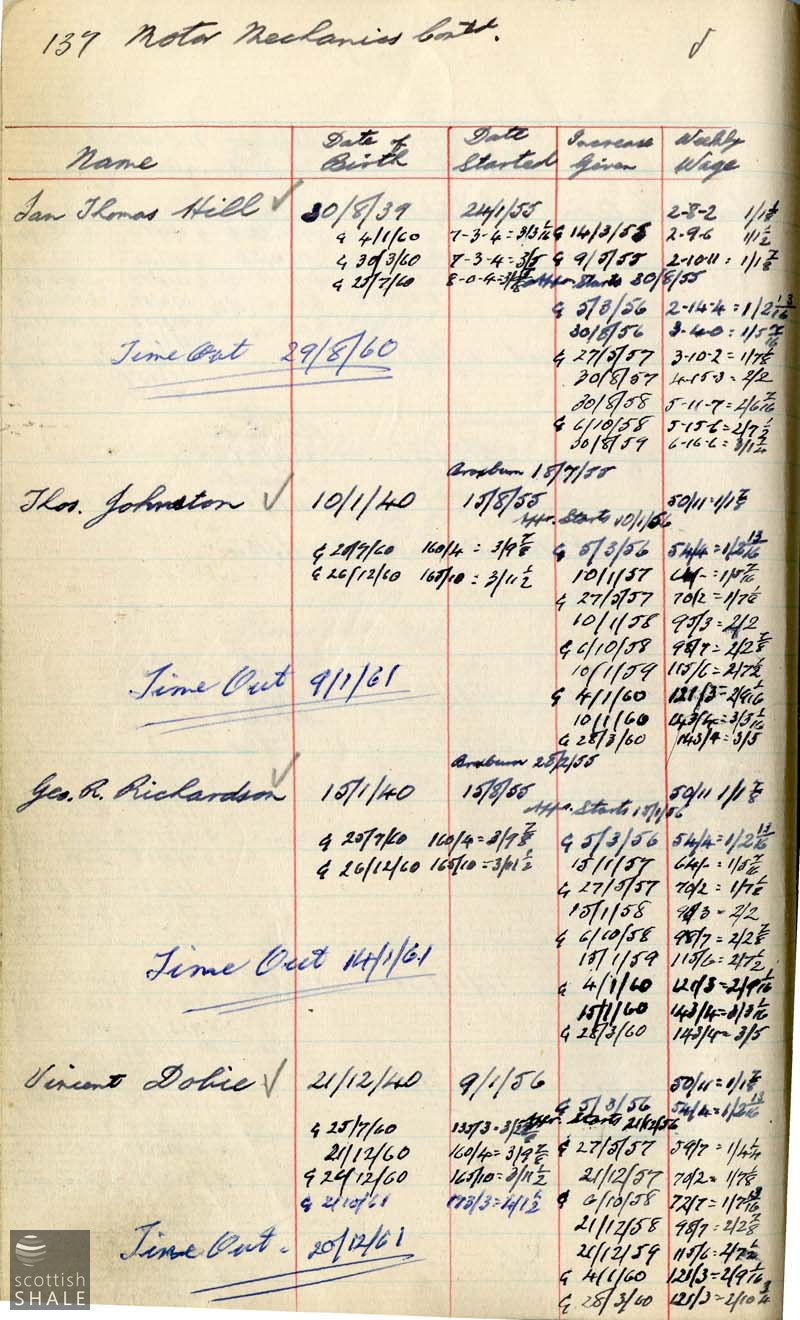 137 Motor Mechanics Contd.
Name Date of Birth Date Started Increase Given Weekly Wage
Ian Thomas Hill 30/8/39 24/1/55 2-8-2
G 4/1/60 7-3-4 = 3/3 1/16 G 14/3/55 2-9-6 1/1 1/2
G 30/3/60 7-3-4 = 3/5 G 9/5/55 2-10-11 = 1/1 7/8
G 25/7/60 8-0-4 Appr. Starts 30/8/55
G 5/3/56 2-14-4 = 1/2 13/16
30/8/56 3-4-0 = 1/5 7/16
Time Out 29/8/60 G 27/5/57 3-10-2 = 1/7 1/8
30/8/57 4-15-3 = 2/2
30/8/58 5-11-7 = 2/6 7/16
G 6/10/58 5-15-6 = 2/7 1/2
30/8/59 6-16-6
Broxburn 15/7/55
Thos. Johnston 10/1/40 15/8/55 50/11 = 1/1 7/8
Appr. Starts 10/1/56
G 25/7/60 160/4 = 3/9 7/8 G 5/3/56 54/4 = 1/2 13/16
G 26/12/60 165/10 = 3/11 1/2 10/1/57 64/- = 1/5 7/16
G 27/5/57 70/2 = 1/7 1/8
10/1/58 95/3 = 2/2
G 6/10/58 98/7 = 2/2 7/8
10/1/59 115/6 = 2/7 1/2
Time Out 9/1/61 G 4/1/60 121/3 = 2/9 1/16
10/1/60 143/4 = 3/3 1/16
G 28/3/60 143/4 = 3/5
Broxburn 28/2/55
Geo. R. Richardson 15/1/40 15/8/55 50/11 1/1 7/8
Appr. Starts 15/1/56
G 25/7/60 160/4 = 3/9 7/8 G 5/3/56 54/4 = 1/2 13/16
G 26/12/60 165/10 = 3/11 1/2 15/1/57 64/- = 1/5 7/16
G 27/5/57 70/2 = 1/7 1/8
15/1/58 95/3 = 2/2
G 6/10/58 98/7 = 2/2 7/8
Time Out 14/1/61 15/1/59 115/6 = 2/7 1/2
G 4/1/60 121/3 = 2/9 1/16
15/1/60 143/4 = 3/3 1/16
G 28/3/60 143/4 = 3/5
Vincent Dobie 21/12/40 9/1/56 50/11 = 1/1 7/8
G 5/3/56 54/4 = 1/2 13/16
G 25/7/60 135/3 Appr. Starts 21/12/56
21/12/60 160/4 = 3/9 7/8 G 27/5/57 59/7 = 1/4 1/4
G 26/12/60 165/10 = 3/11 1/2 21/12/57 70/2 = 1/7 1/8
G 2/10/61 173/3 = 4/1 1/2 G 6/10/58 72/7 = 1/7 13/16
21/12/58 98/7 = 2/2 7/8
Time Out - 20/12/61 21/12/59 115/6 = 2/7 1/2
G 4/1/60 121/3 = 2/9 1/16
G 28/3/60 121/3 = 2/10 3/4
scottish
SHALE